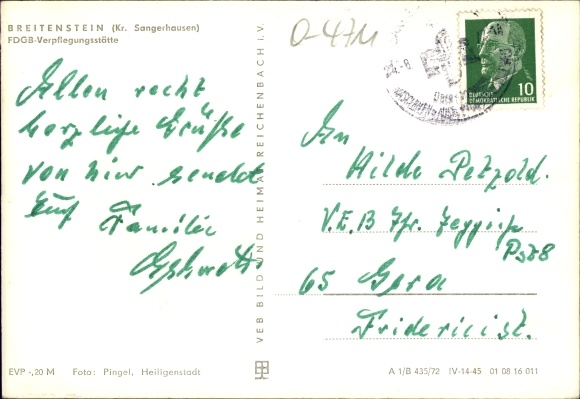 BREITENSTEIN (Kr. Sangerhausen)
FDGB-Verpflegungsstätte
O-47M
Allen recht
herzliche Grüße
von hier sendet
Euch Familie
VEB BILD UND HEIMAT REICHENBACH I. V.
DEUTSCHE
DEMOKRATISCHE REPUBLIK
10
An
Hilde Petzold.
V.E.B
65 Gera
Fridericist.
EVP -,20 M Foto: Pingel, Heiligenstadt
A 1/B 435/72 IV-14-45 01 08 16 011